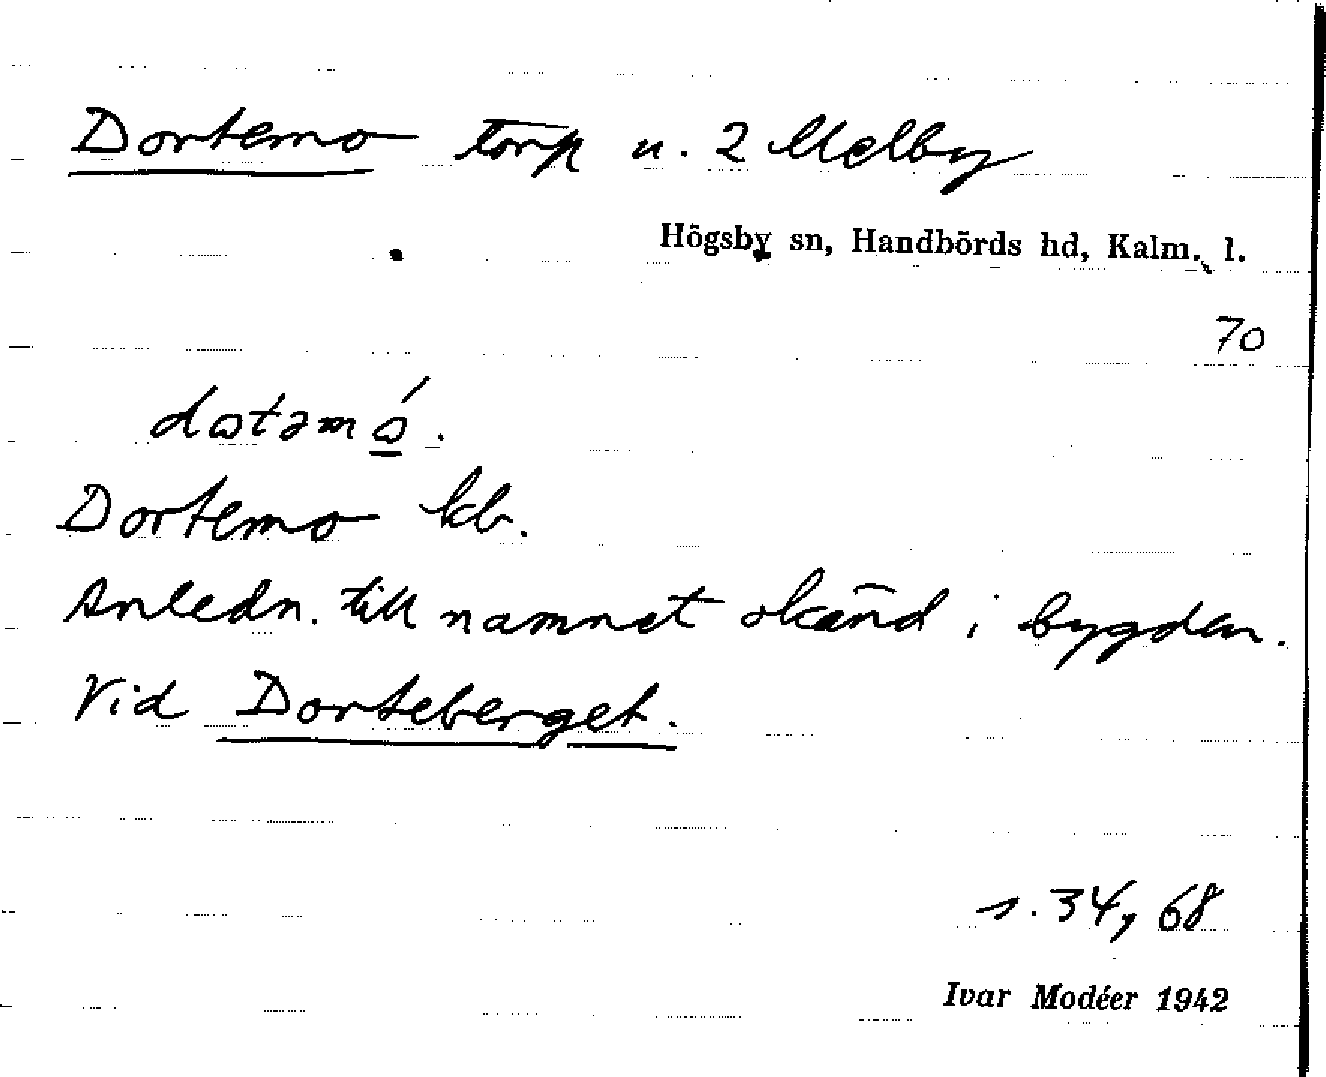 Dortemo torp u. 2 Melby
Högsby sn, Handbörds hd, Kalm. l.
70
Dortemo kb.
Anledn. till namnet okänd i bygden.
Vid Dorteberget.
s. 34, 68
Ivar Modéer 1942